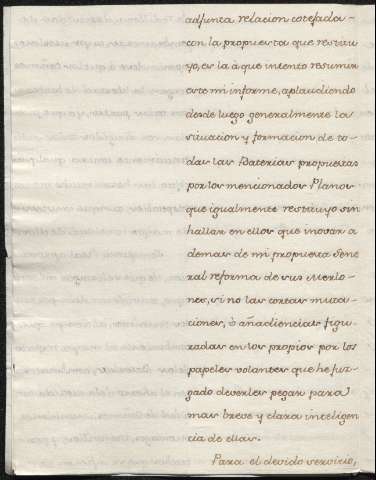 adjunta relacion cotejada
con la propuesta que restitu
yo, es la à que intento resumir
este mi informe, aplaudiendo
desde luego generalmente la
situacion y formacion de to-
das las Baterias propuestas
por los mencionados Planos
que igualmente restituyo sin
hallar en ellos que inovar a
demas de mi propuesta Gene
ral reforma de sus Merlo-
nes, si no las cortas muta-
ciones, ò añadiencias figu-
radas en los propios por los
papeles volantes que he juz-
gado deverles pegar para
mas breve y clara inteligen
cia de ellas.
Para el devido servicio,